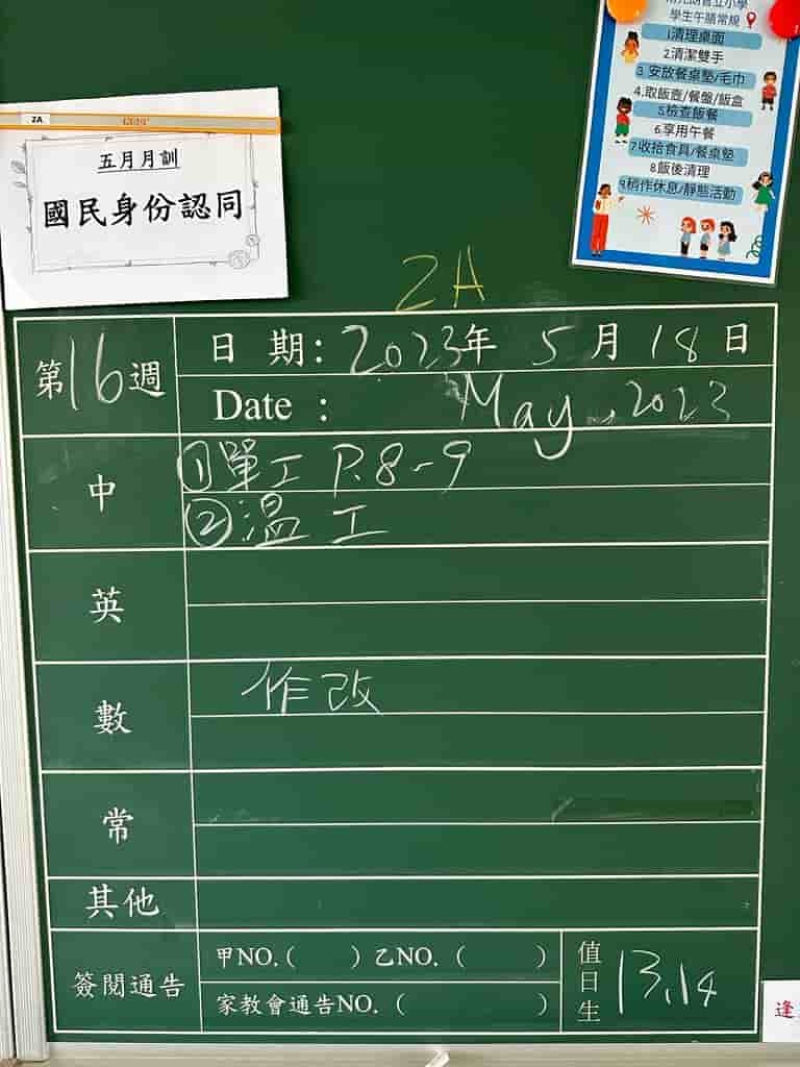 學生午膳常規
1清理桌面
2.清潔雙手
3.安放餐桌墊/毛巾
4.取飯壺/餐盤/飯盒
5檢查飯餐
6.享用午餐
7收拾食具/餐桌墊
8.飯後清理
9.稍作休息/靜態活動
2A
五月月訓
國民身份認同
2A
第16週
日 期：2023年 5月 18日
Date ： May , 2023
中
①單工 P.8-9
②溫工
英
數
作改
常
其他
簽閱通告
甲NO.( ) 乙NO. ( )
家教會通告NO. ( )
值日生
13,14
逢